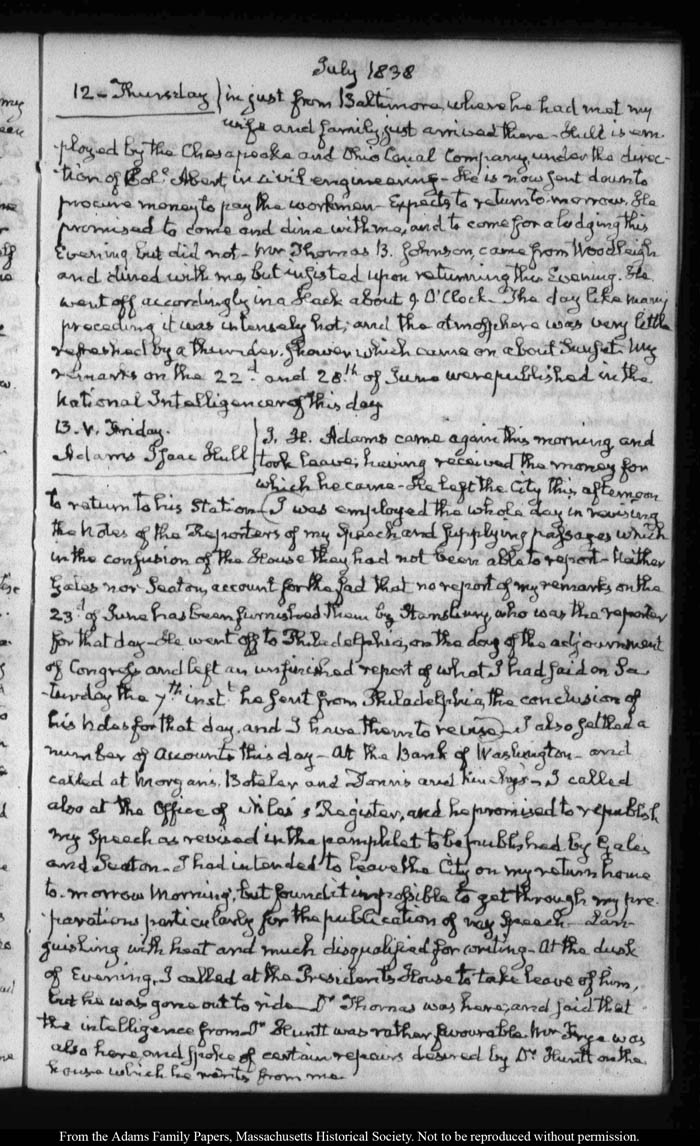 July 1838
12 - Thursday
in just from Baltimore, where he had met my
wife and family, just arrived there - Hull is em-
ployed by the Chesapeake and Ohio Canal Company, under the direc-
tion of Col. Abert, in civil engineering - He is now sent down to
procure money to pay the workmen - Expects to return to-morrow. He
promised to come and dine with me, and to come for a lodging this
Evening, but did not - Mr Thomas B. Johnson, came from Woodleigh
and dined with me, but insisted upon returning this Evening. He
went off accordingly in a Hack about 9 O'Clock. The day like many
preceding it was intensely hot; and the atmosphere was very little
refreshed by a thunder-shower which came on about Sunset. My
remarks on the 22d and 28th of June were published in the
National Intelligencer of this day
13. V. Friday.
Adams Isaac Hull
I. H. Adams came again this morning and
took leave; having received the money for
which he came - He left the City this afternoon
to return to his Station - I was employed the whole day in revising
the Notes of the Reporters of my Speech and supplying passages which
in the confusion of the House they had not been able to report - Neither
Gales nor Seaton, account for the fact that no report of my remarks on the
23d of June has been furnished them by Stansbury, who was the reporter
for that day - He went off to Philadelphia, on the day of the adjournment
of Congress and left an unfinished report of what I had said on Sa-
turday the 7th inst. he sent from Philadelphia, the conclusion of
his notes for that day, and I have them to revise - I also settled a
number of accounts this day - At the Bank of Washington - and
called at Morgan's, Boteler and Donn's and - I called
also at the Office of Niles's Register, and he promised to republish
my Speech as revised in the pamphlet to be published by Gales
and Seaton - I had intended to leave the City on my return home
to-morrow Morning, but found it impossible to get through my pre-
parations particularly for the publication of my Speech - Lan-
guishing with heat and much disqualified for writing - At the dusk
of Evening, I called at the President's House to take leave of him,
but he was gone out to ride - Dr Thomas was here, and said that
the intelligence from Dr Huntt was rather favourable. Mr Frye was
also here, and spoke of certain repairs desired by Dr Huntt on the
house which he rents from me
From the Adams Family Papers, Massachusetts Historical Society. Not to be reproduced without permission.